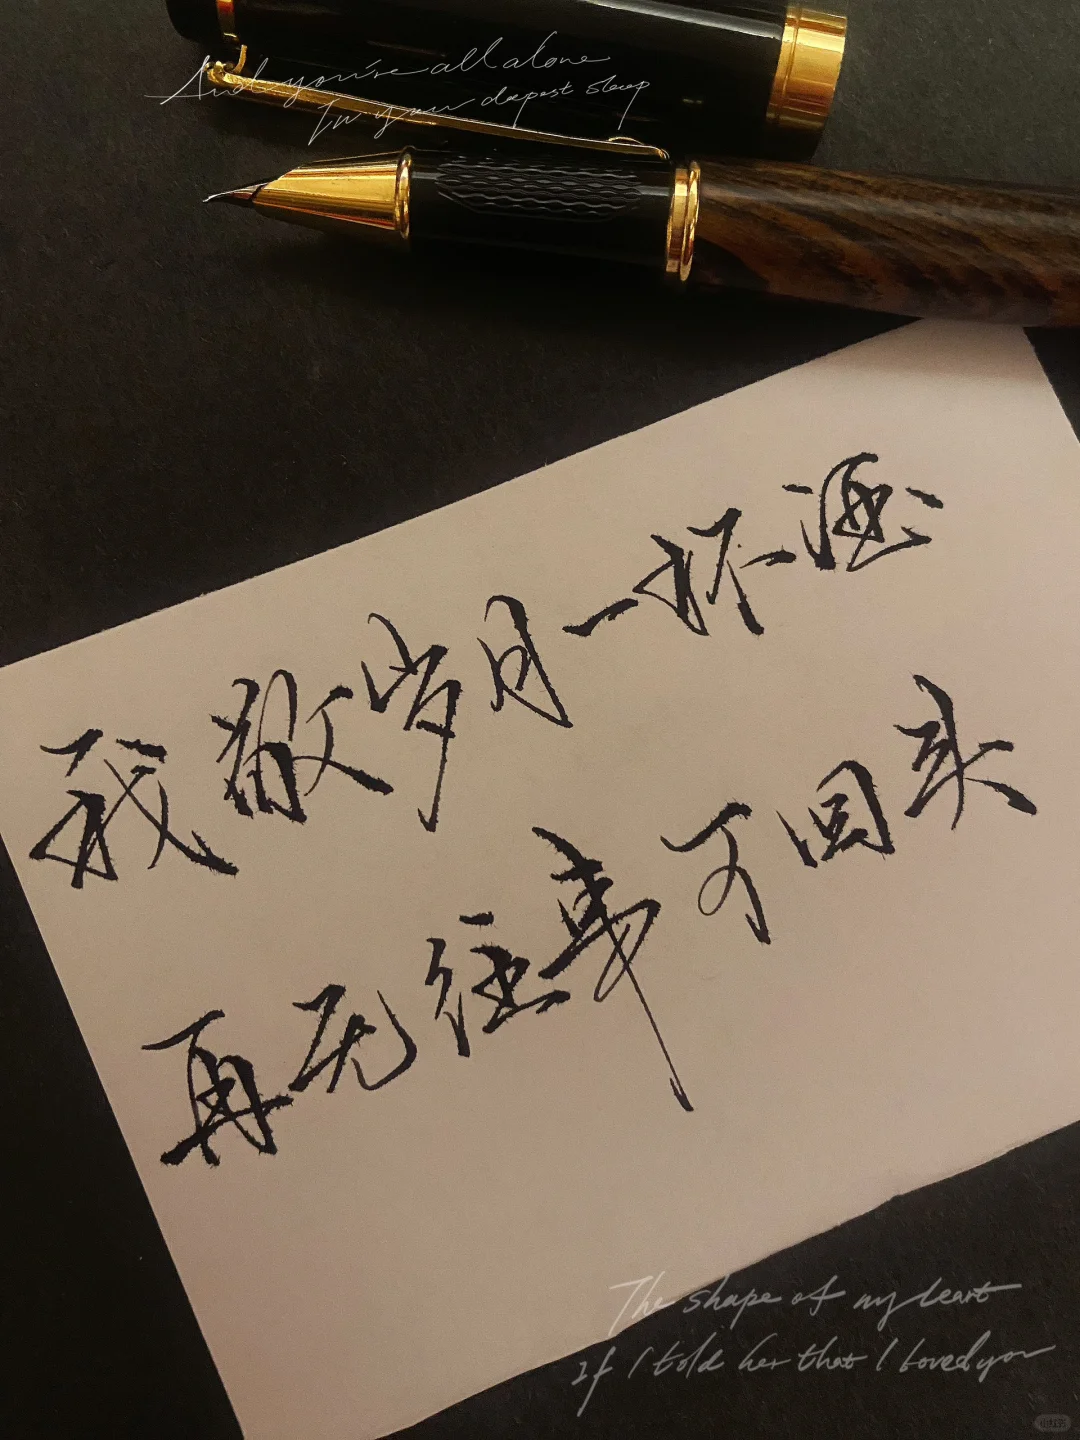 And you're all alone
In your deepest sleep
我敬岁月一杯酒
再无往事可回头
The shape of my heart
If I told her that I loved you
小红书